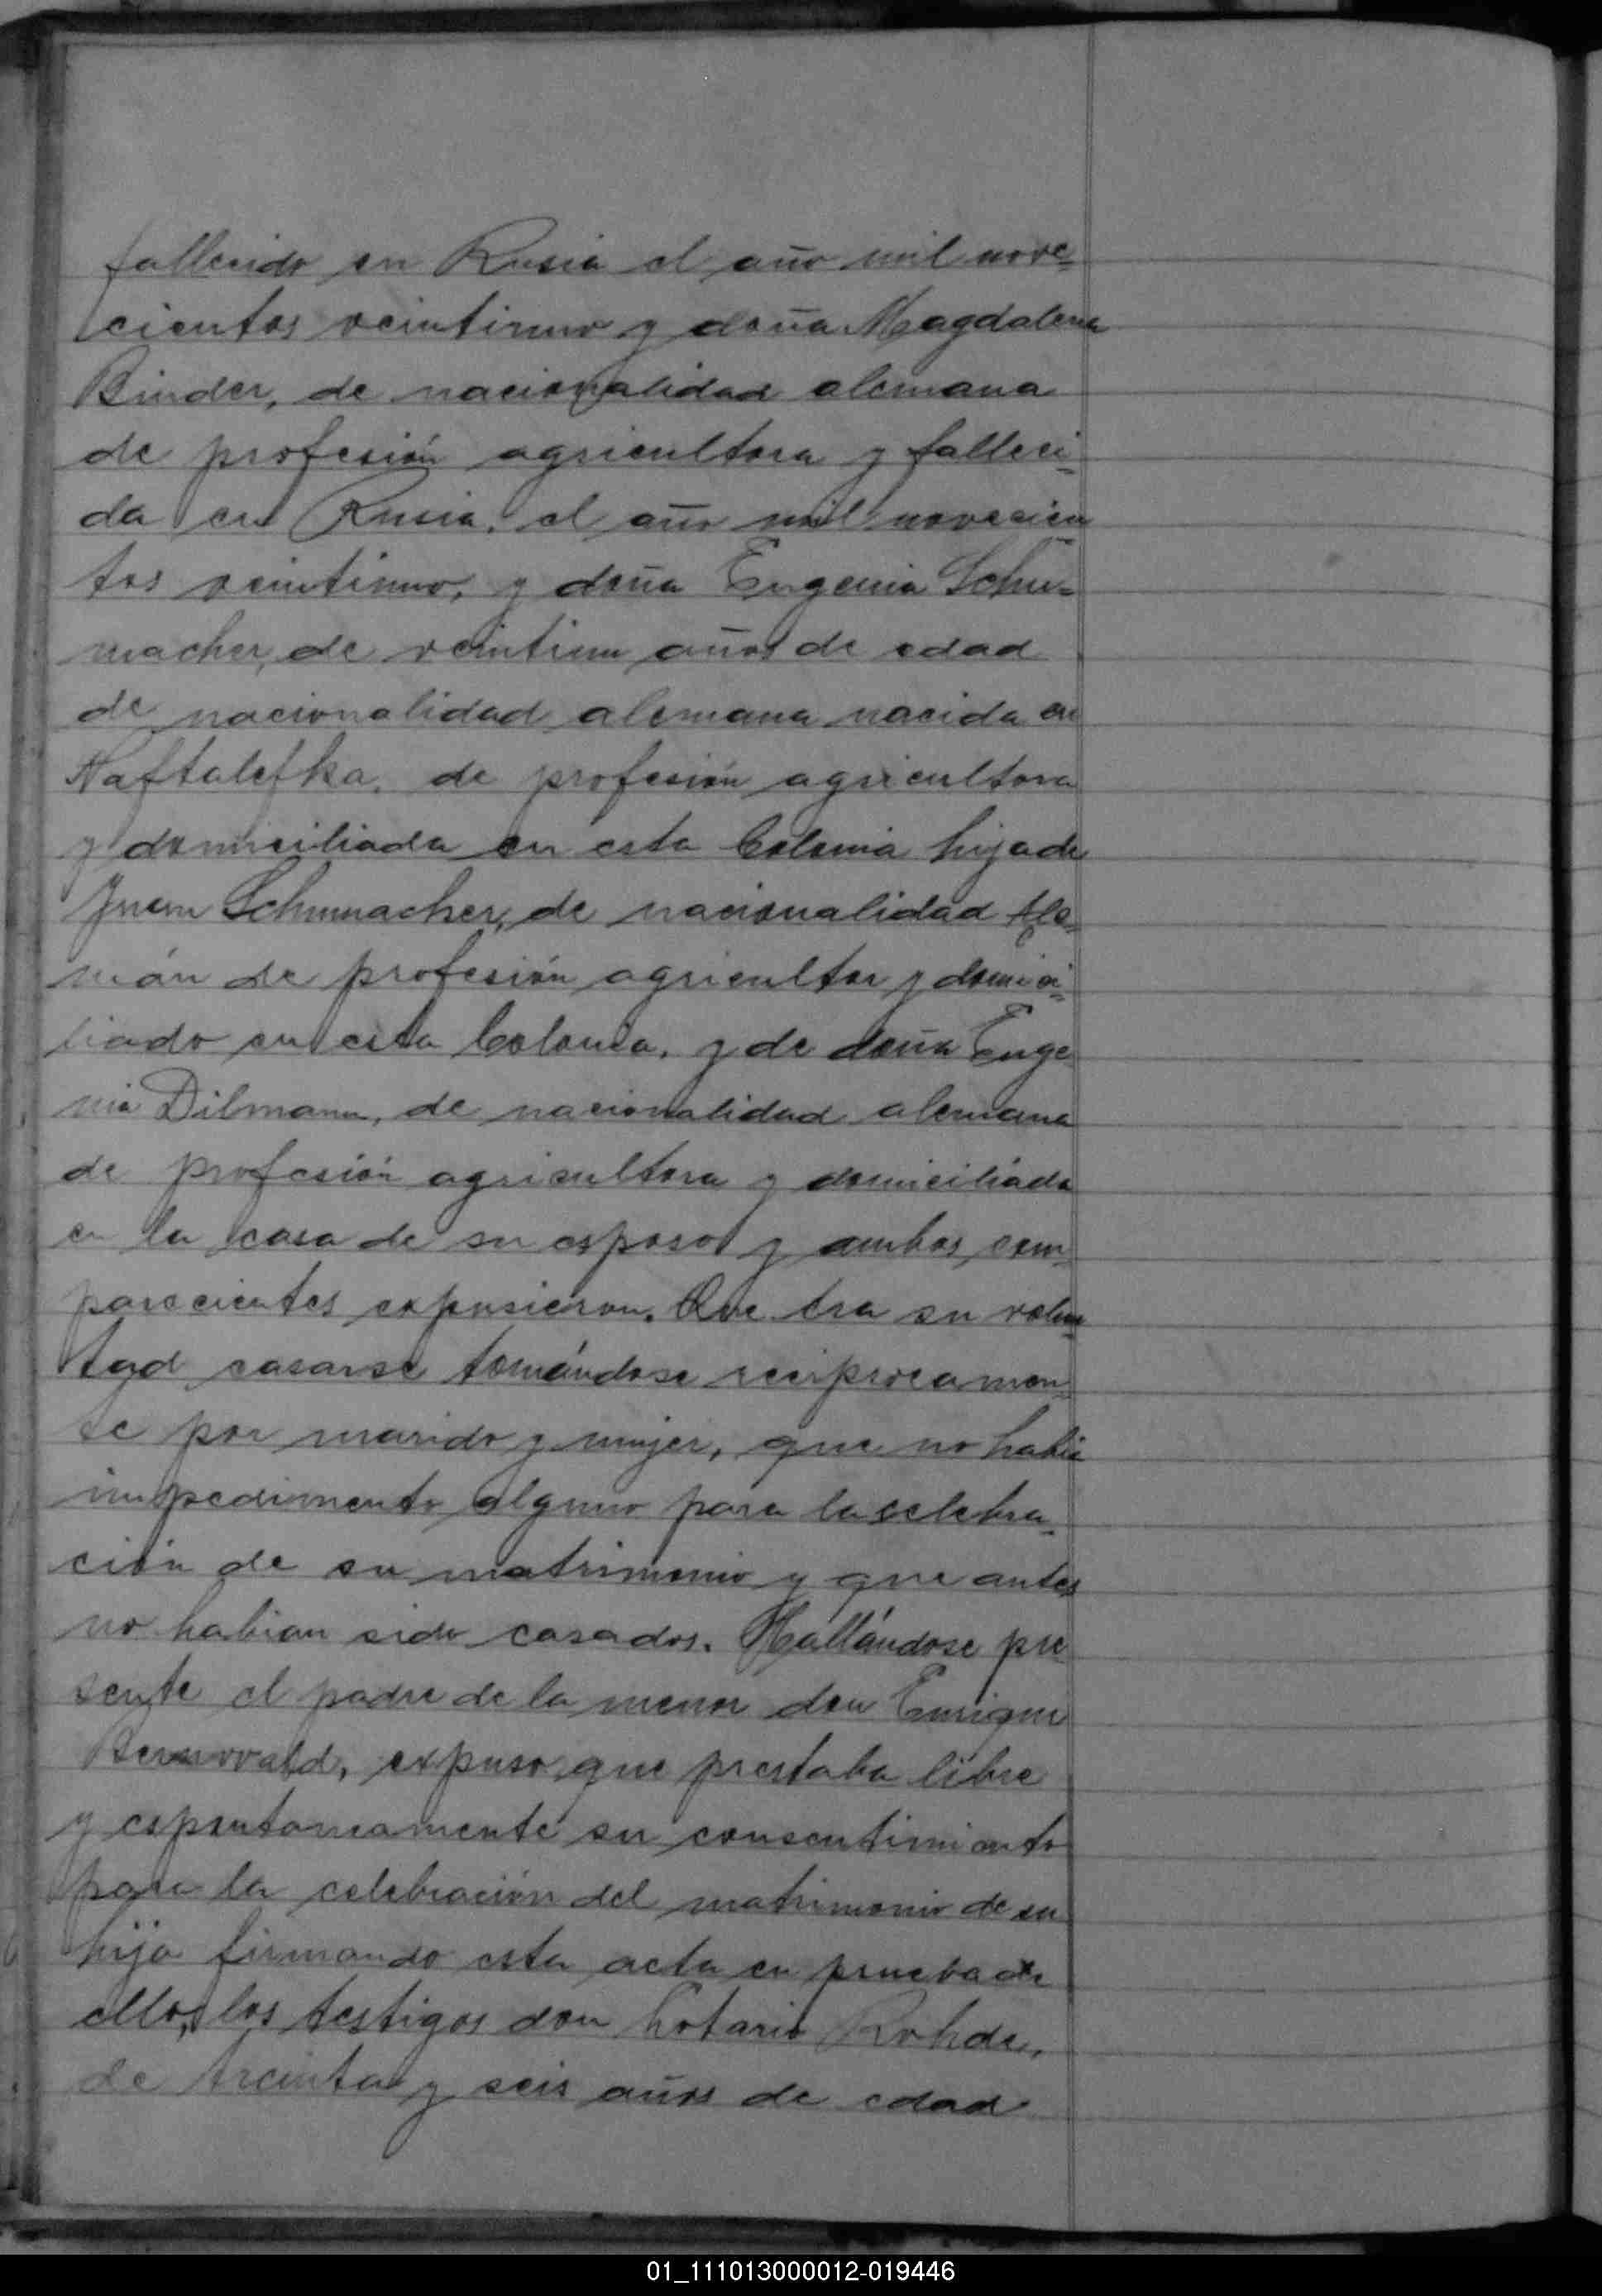 fallecido en Rusia el año mil nove=
cientos veintiuno y doña Magdalena
Binder, de nacionalidad alemana
de profesión agricultora y falleci=
da en Rusia, el año mil novecien=
tos veintiuno, y doña Eugenia Schu=
macher, de veintiun años de edad
de nacionalidad alemana nacida en
Naftalefka, de profesión agricultora
y domiciliada en esta Colonia hija de
Juan Schumacher, de nacionalidad Ale=
mán de profesión agricultor y domici=
liado en esta Colonia, y de doña Euge
nia Dilmann, de nacionalidad alemana
de profesión agricultora y domiciliada
en la casa de su esposo y ambos com=
parecientes expusieron. Que era su volun=
tad casarse tomándose reciprocamen=
te por marido y mujer, que no habia
impedimento alguno para la celebra=
ción de su matrimonio y que antes
no habian sido casados. Hallándose pre
sente el padre de la menor don Enrique
expuso que prestaba libre
y espontaneamente su consentimiento
para la celebración del matrimonio de su
hija firmando esta acta en prueba de
ello, los testigos don Lotario Rohde,
de treinta y seis años de edad
01_111013000012-019446